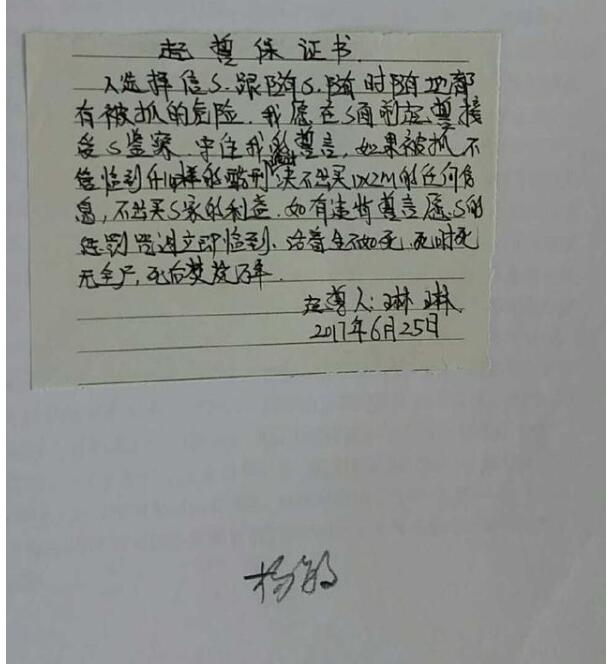 起誓保证书
人选择信S.跟随S.随时随地都
有被抓的危险.我愿在S面前起誓接
受S鉴察.守住我的誓言,如果被抓不
管临到什么样的酷刑决不出卖DXZM的任何信
息,不出卖S家的利益.如有违背誓言愿.S的
惩罚咒诅立即临到.活着生不如死.死时死
无全尸,死后焚烧万年.
起誓人:琳琳
2017年6月25日
杨